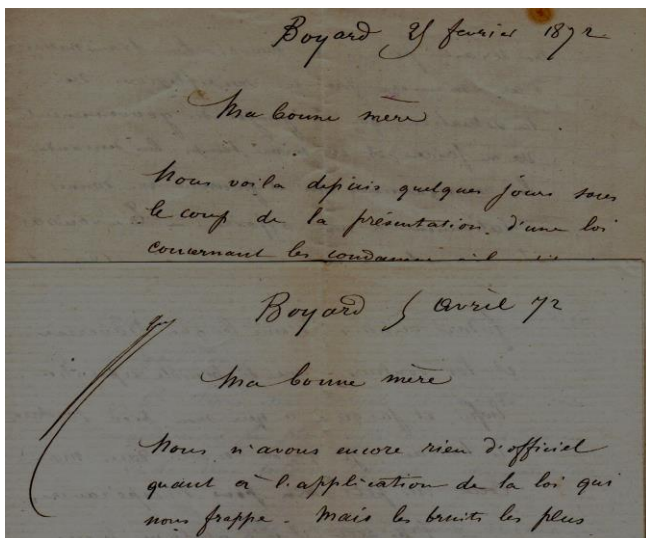 Boyard 25 fevrier 1872
Ma bonne mère
Nous voilà depuis quelques jours sous
le coup de la présentation d'une loi
concernant les condamnés
Boyard 5 avril 72
Ma bonne mère
Nous n'avons encore rien d'officiel
quant à l'application de la loi qui
nous frappe. Mais les bruits les plus